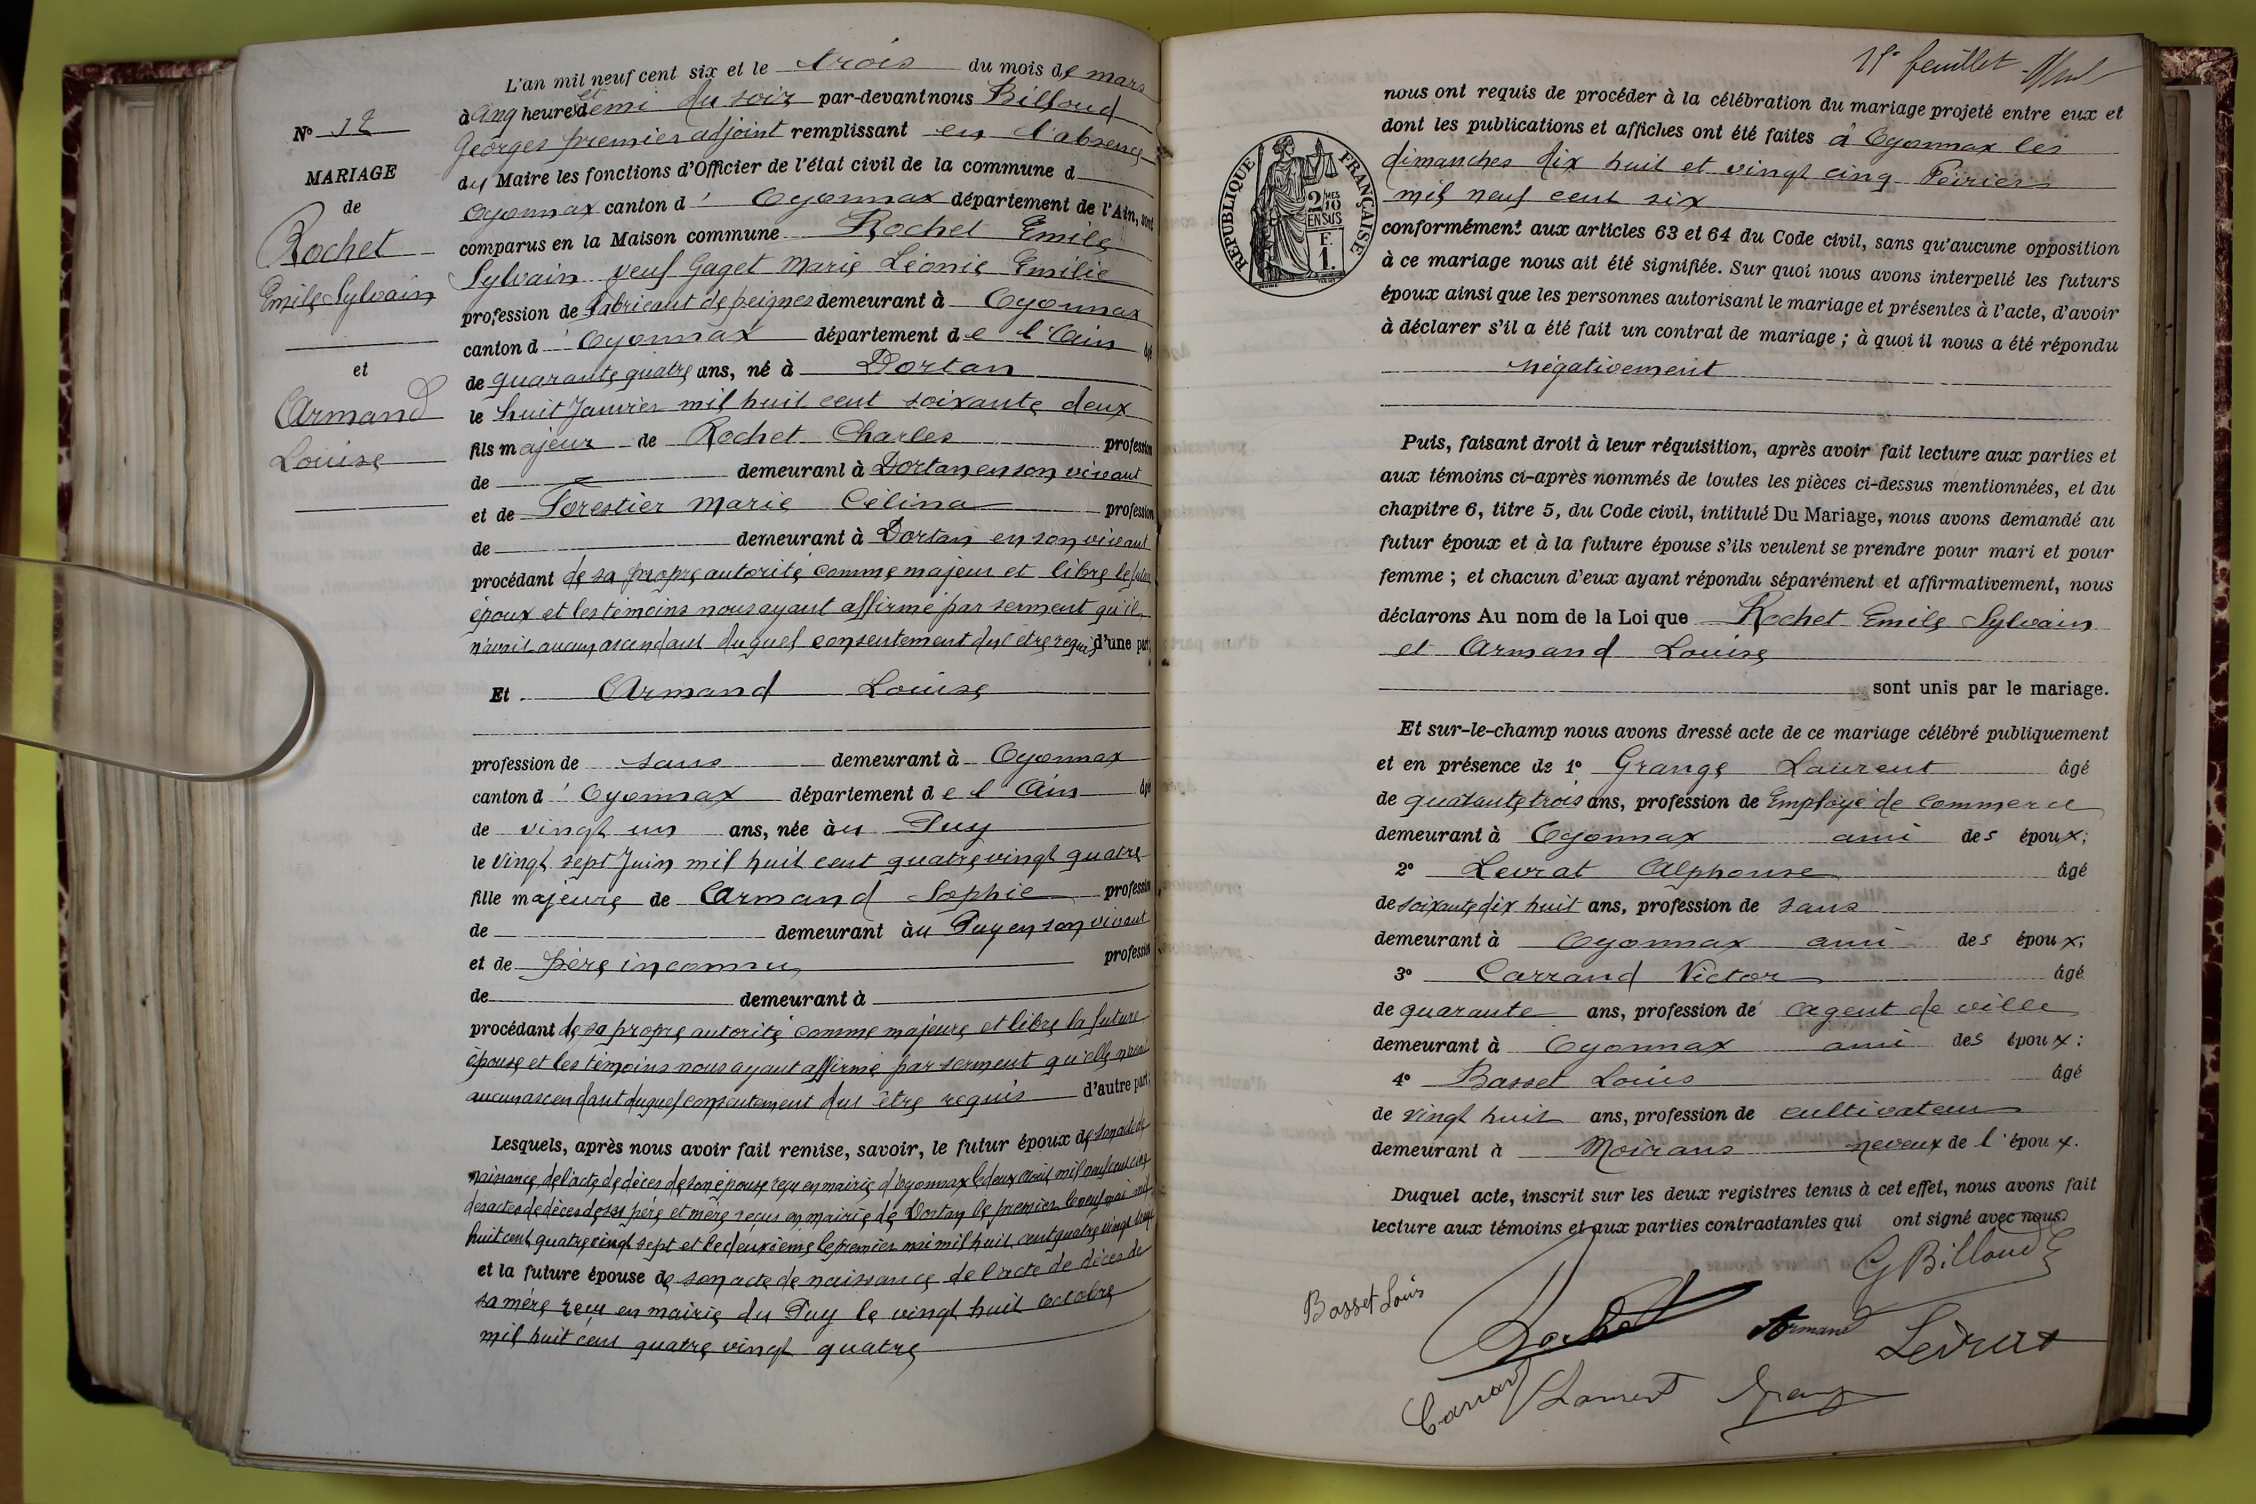 N° 12
MARIAGE
de
Rochet
Emile Sylvain
et
Armand
Louise
L'an mil neuf cent six et le trois du mois de mars
à cinq heures et demi du soir par-devant nous Billoud
Georges premier adjoint remplissant en l'absence
du Maire les fonctions d'Officier de l'état civil de la commune d
Oyonnax canton d' Oyonnax département de l'Ain, sont
comparus en la Maison commune Rochet Emile
Sylvain veuf Gaget Marie Léonie Emilie
profession de fabricant de peignes demeurant à Oyonnax
canton d' Oyonnax département de l'Ain âgé
de quarante quatre ans, né à Dortan
le huit Janvier mil huit cent soixante deux
fils majeur de Rochet Charles profession
de demeurant à Dortan en son vivant
et de Forestier Marie Célina profession
de demeurant à Dortan en son vivant
procédant de sa propre autorité comme majeur et libre le futur
époux et les témoins nous ayant affirmé par serment qu'il
n'avait aucun ascendant duquel consentement dut être requis d'une part;
Et Armand Louise
profession de sans demeurant à Oyonnax
canton d' Oyonnax département de l'Ain âgé
de vingt un ans, née au Puy
le vingt sept Juin mil huit cent quatre vingt quatre
fille majeure de Armand Sophie profession
de demeurant au Puy en son vivant
et de père inconnu profession
de demeurant à
procédant de sa propre autorité comme majeure et libre la future
épouse et les témoins nous ayant affirmé par serment qu'elle n'avait
aucun ascendant duquel consentement dut être requis d'autre part;
Lesquels, après nous avoir fait remise, savoir, le futur époux de son acte de
naissance, de l'acte de décès de son épouse reçu en mairie d'Oyonnax le deux avril mil neuf cent cinq
des actes de décès de ses père et mère reçus en mairie de Dortan le premier le neuf mai mil
huit cent quatre vingt sept et le deuxième le premier mai mil huit cent quatre vingt
et la future épouse de son acte de naissance de l'acte de décès de
sa mère reçu en mairie du Puy le vingt huit octobre
mil huit cent quatre vingt quatre
15e feuillet
RÉPUBLIQUE FRANÇAISE
2/10
EN SUS
F.
1.
nous ont requis de procéder à la célébration du mariage projeté entre eux et
dont les publications et affiches ont été faites à Oyonnax les
dimanches dix huit et vingt cinq Février
mil neuf cent six
conformément aux articles 63 et 64 du Code civil, sans qu'aucune opposition
à ce mariage nous ait été signifiée. Sur quoi nous avons interpellé les futurs
époux ainsi que les personnes autorisant le mariage et présentes à l'acte, d'avoir
à déclarer s'il a été fait un contrat de mariage ; à quoi il nous a été répondu
négativement
Puis, faisant droit à leur réquisition, après avoir fait lecture aux parties et
aux témoins ci-après nommés de toutes les pièces ci-dessus mentionnées, et du
chapitre 6, titre 5, du Code civil, intitulé Du Mariage, nous avons demandé au
futur époux et à la future épouse s'ils veulent se prendre pour mari et pour
femme ; et chacun d'eux ayant répondu séparément et affirmativement, nous
déclarons Au nom de la Loi que Rochet Emile Sylvain
et Armand Louise
sont unis par le mariage.
Et sur-le-champ nous avons dressé acte de ce mariage célébré publiquement
et en présence de 1° Grange Laurent âgé
de quarante trois ans, profession de Employé de commerce
demeurant à Oyonnax ami des époux;
2° Levrat Alphonse âgé
de soixante dix huit ans, profession de sans
demeurant à Oyonnax ami des époux;
3° Carrand Victor âgé
de quarante ans, profession de agent de ville
demeurant à Oyonnax ami des époux;
4° Basset Louis âgé
de vingt huit ans, profession de cultivateur
demeurant à Moirans neveux de l'époux.
Duquel acte, inscrit sur les deux registres tenus à cet effet, nous avons fait
lecture aux témoins et aux parties contractantes qui ont signé avec nous.
G Billoud
Basset Louis
Rochet
Armand
Levrat
Carrand
Laurent Grange